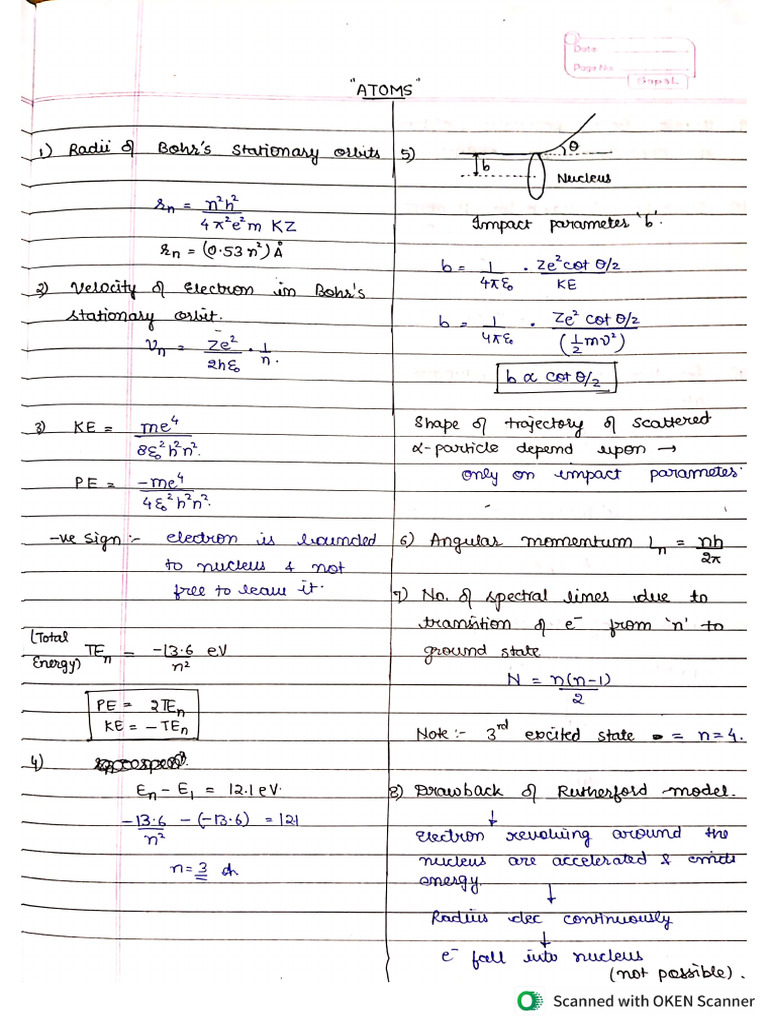 Date
Page No.
Gopal
"ATOMS"
1) Radii of Bohr's stationary orbits
rₙ = n²h² / 4π²e²m KZ
rₙ = (0.53 n²) Å
2) Velocity of Electron in Bohr's
stationary orbit.
Vₙ = Ze² / 2hε₀ · 1/n.
3) KE = me⁴ / 8ε₀²h²n².
PE = -me⁴ / 4ε₀²h²n².
-ve sign :- electron is bounded
to nucleus & not
free to leave it.
(Total
Energy) TEₙ = -13.6 eV / n²
PE = 2TEₙ
KE = -TEₙ
4)
Eₙ - E₁ = 12.1 eV.
-13.6 / n² - (-13.6) = 121
n = 3
5)
θ
b
Nucleus
Impact parameter 'b'.
b = 1 / 4πε₀ · Ze² cot θ/2 / KE
b = 1 / 4πε₀ · Ze² cot θ/2 / (½mv²)
b α cot θ/2
Shape of trajectory of scattered
α-particle depend upon →
only on impact parameter
6) Angular momentum Lₙ = nh / 2π
7) No. of spectral lines due to
transition of e⁻ from 'n' to
ground state
N = n(n-1) / 2
Note :- 3rd excited state = n=4.
8) Drawback of Rutherford model.
↓
Electron revolving around the
nucleus are accelerated & emits
energy.
↓
Radius dec continuously
↓
e⁻ fall into nucleus
(not possible).
Scanned with OKEN Scanner